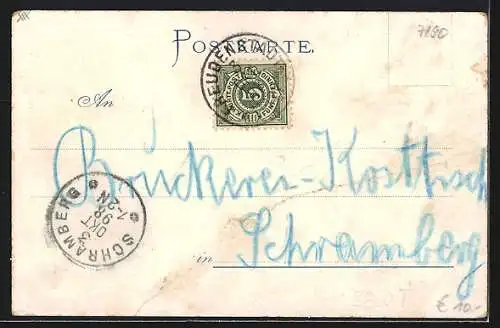 7190
POSTKARTE.
FREUDENSTADT
5
An
Brückerei-Kosttisch
SCHRAMBERG
3 OKT 98
1-2N
in Schramberg
€ 10.-